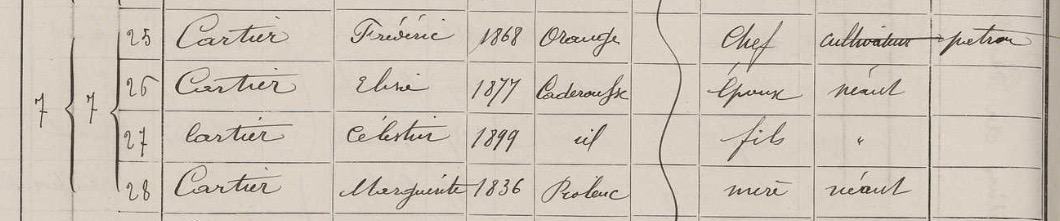 7 7 25 Cartier Frédéric 1868 Orange Chef cultivateur patron
26 Cartier Elise 1877 Caderousse époux néant
27 Cartier Célestin 1899 id fils "
28 Cartier Marguerite 1836 Piolenc mère néant